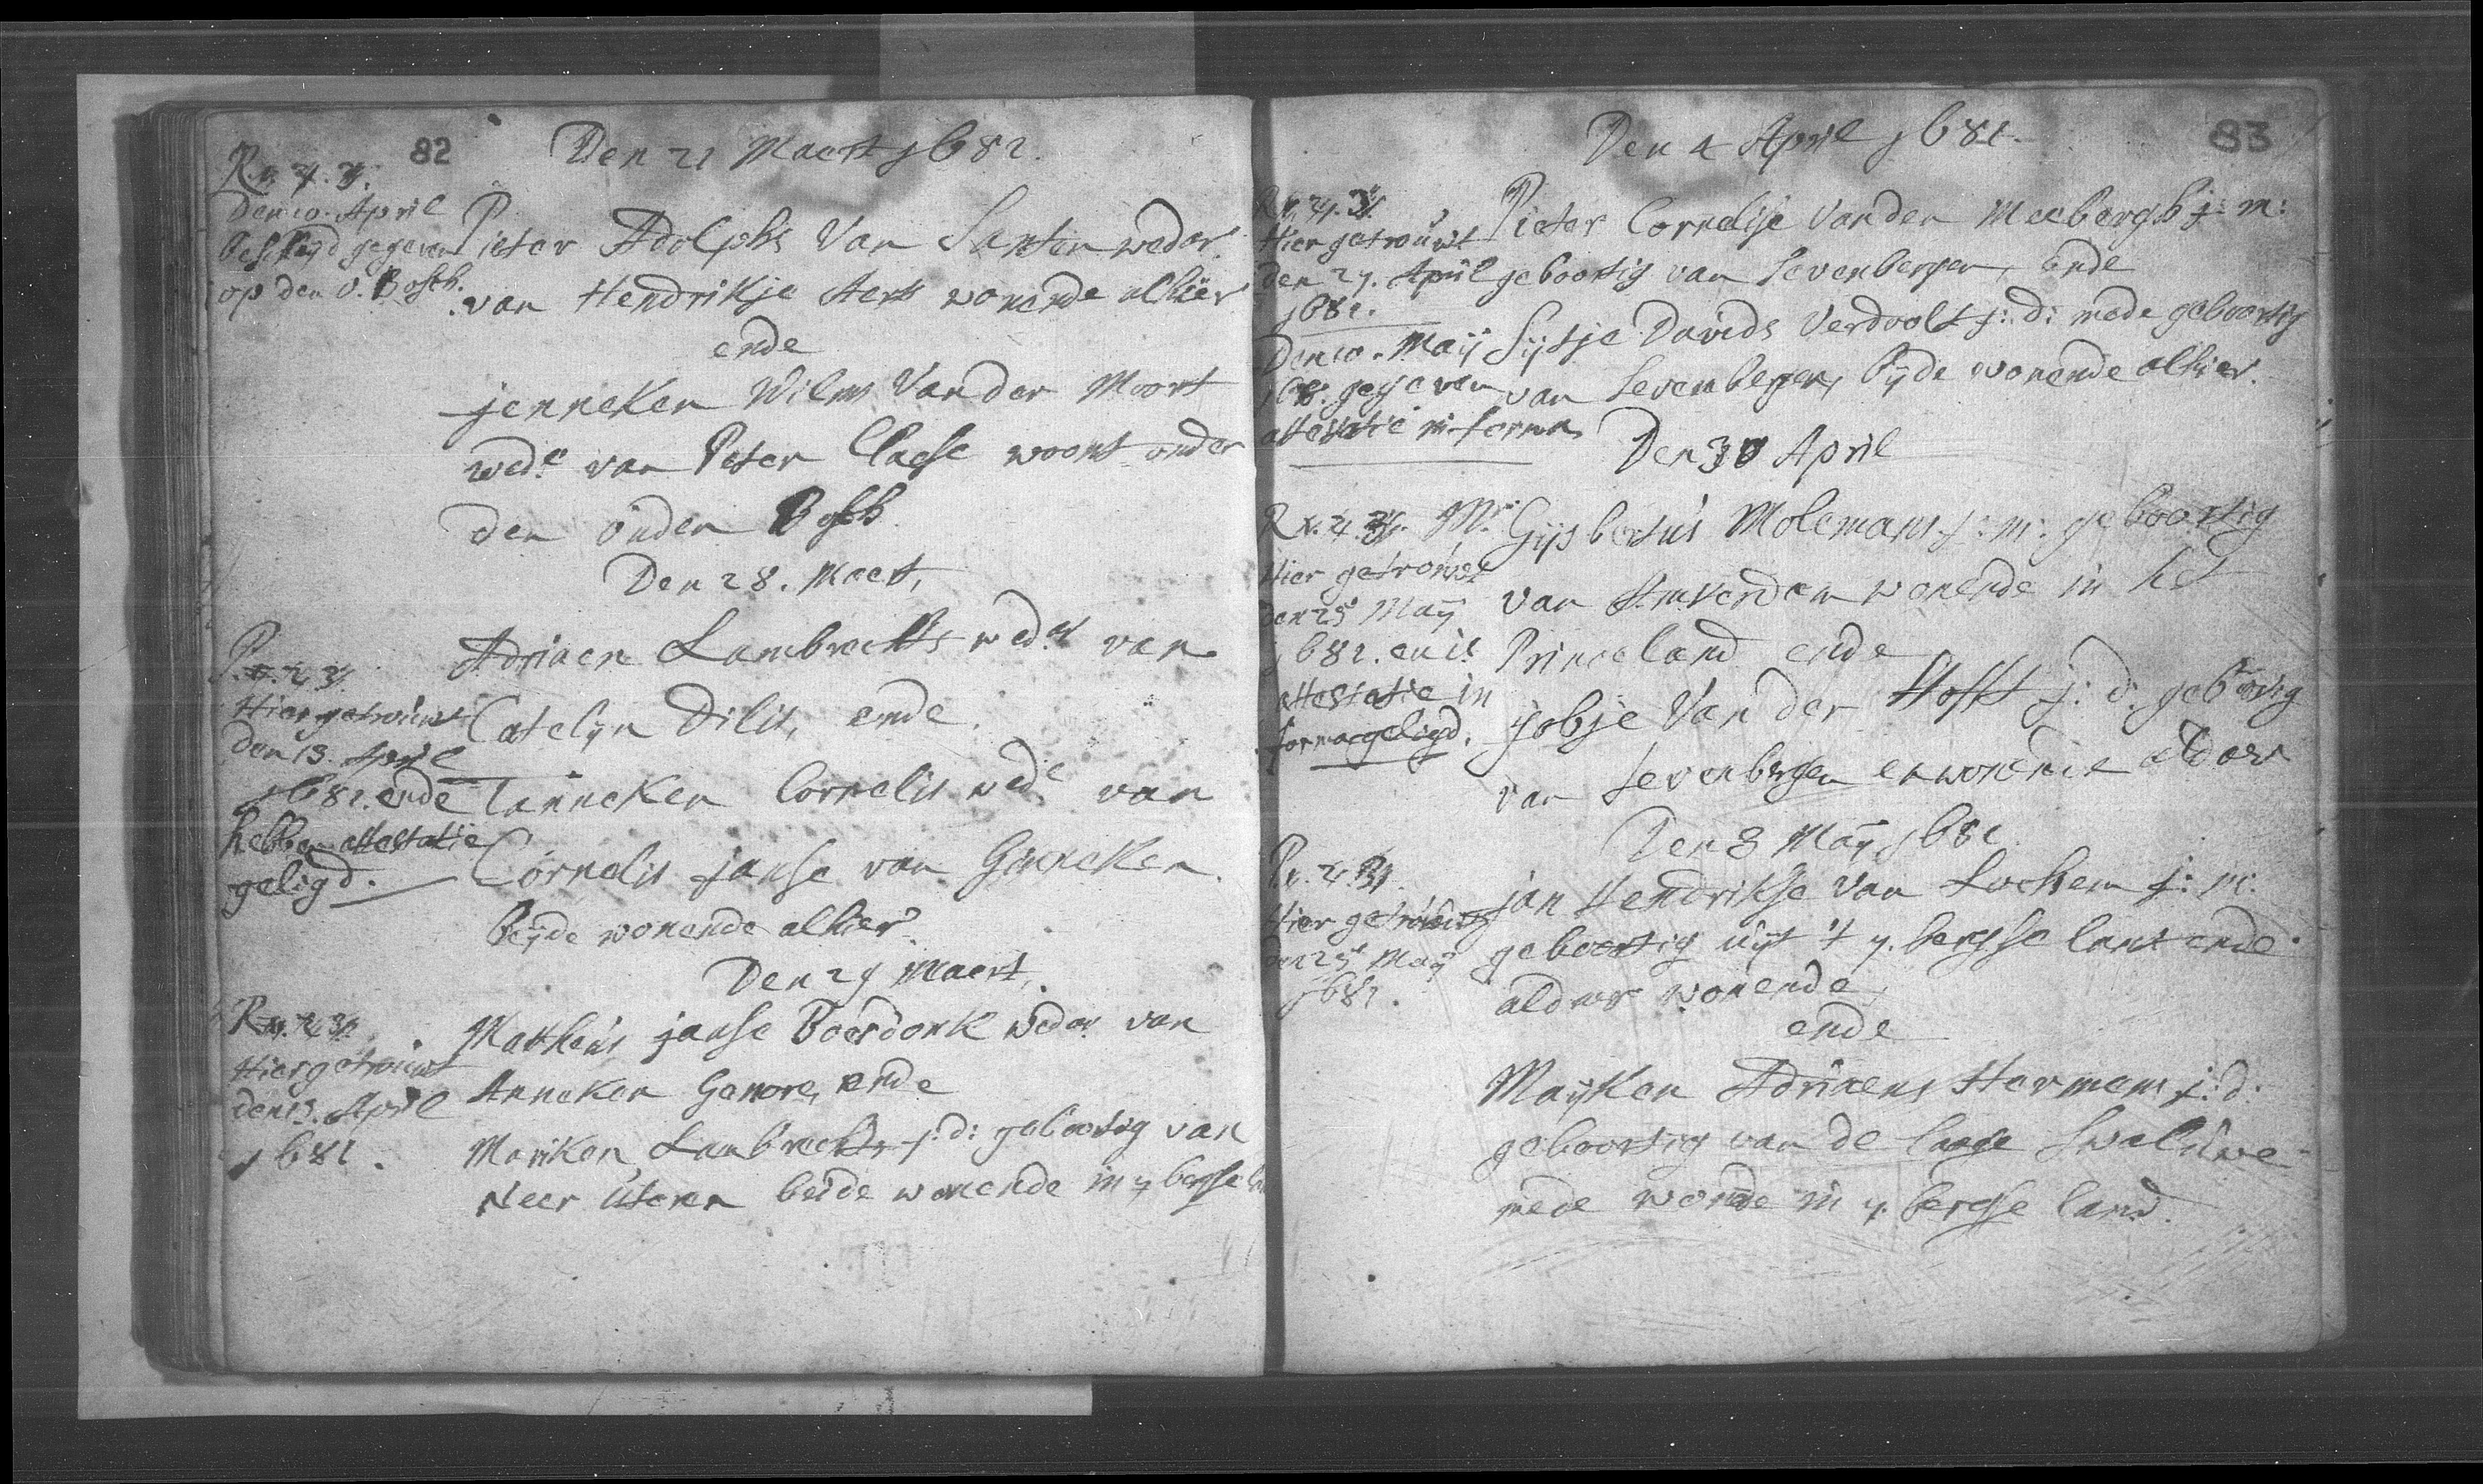 82
Den 21 Maert 1682.
R. 1. 2. 3.
Den 10. April
bescheyd gegeven
op den o. Bosch.
Pieter Adolphs Van Santen wedr.
van Hendrikje Aerts wonende alhier
ende
jenneken Wilms Vander Moort
wede. van Peter Claese woont onder
den ouden Bosch
Den 28. Maert,
R. 1. 2. 3.
Hier getrouwt
den 13. April
1681. ende
hebben attestatie
geligd.
Adriaen Lambrechts wedr van
Catelyn Dilis, ende
Tanneken Cornelis wede van
Cornelis Janse van Ginneken.
beyde wonende alhier.
Den 29 Maert,
R. 1. 2. 3.
Hier getrouwt
den 13. April
1681.
Matheus janse Boerdonk wedr van
Anneken Gemore, ende
Mariken Lambrechts j: d: geboortig van
Neer beide wonende in g bergse
83
Den 4 April 1681.
R. 1. 2. 3.
Hier getrouwt
den 27. April
1681.
Den 10. Maij
gegeven
attestatie in forma
Pieter Cornelise Vanden Meebergh j: m:
geboortig van Sevenbergen, Ende
Sijtje Davids Verdoolt j: d: mede geboortig
van Sevenbergen, bijde wonende alhier.
Den 30 April
R. 1. 2. 3.
Hier getrouwt
den 25e Maij
1681. en is
attestatie in
forma geligd.
Mr. Gijsbertus Molemans j: m: geboortig
van Amsterdam wonende in het
Princeland ende
jobje Van der Hofft j: d: geboortig
van Sevenbergen en wonende aldaer
Den 8 Maij 1681.
R. 1. 2. 3.
Hier getrouwt
den 25e Maij
1681.
jan Hendrikse Van Lochem j: m:
geboortig uijt 't g. bergse lant ende
aldaer wonende,
ende
Maijken Adriaens Hermens j: d:
geboortig van de laege Swaluwe
mede wonende in g. bergse land.